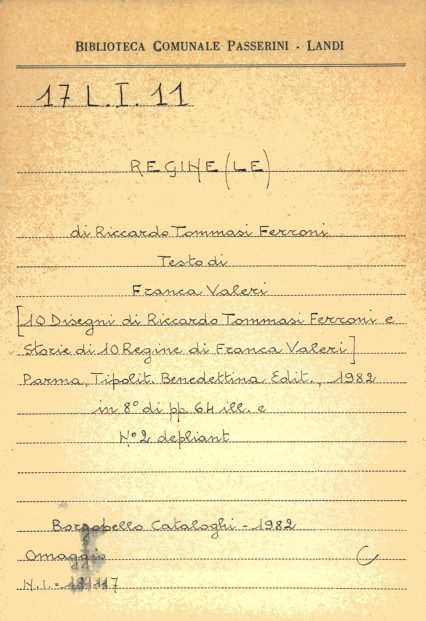 BIBLIOTECA COMUNALE PASSERINI - LANDI
17 L. I. 11
REGINE (LE)
di Riccardo Tommasi Ferroni
Testo di
Franca Valeri
[10 Disegni di Riccardo Tommasi Ferroni e
Storie di 10 Regine di Franca Valeri]
Parma, Tipolit. Benedettina Edit., 1982
in 8° di pp 64 ill. e
N° 2 depliant
Borgobello Cataloghi - 1982
Omaggio C
N.I. =